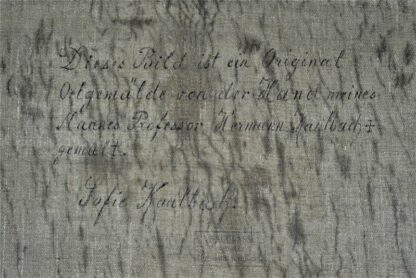 Dieses Bild ist ein Original
Oelgemälde von der Hand meines
Mannes Professor Hermann Kaulbach ‡
gemalt.
Sofie Kaulbach.